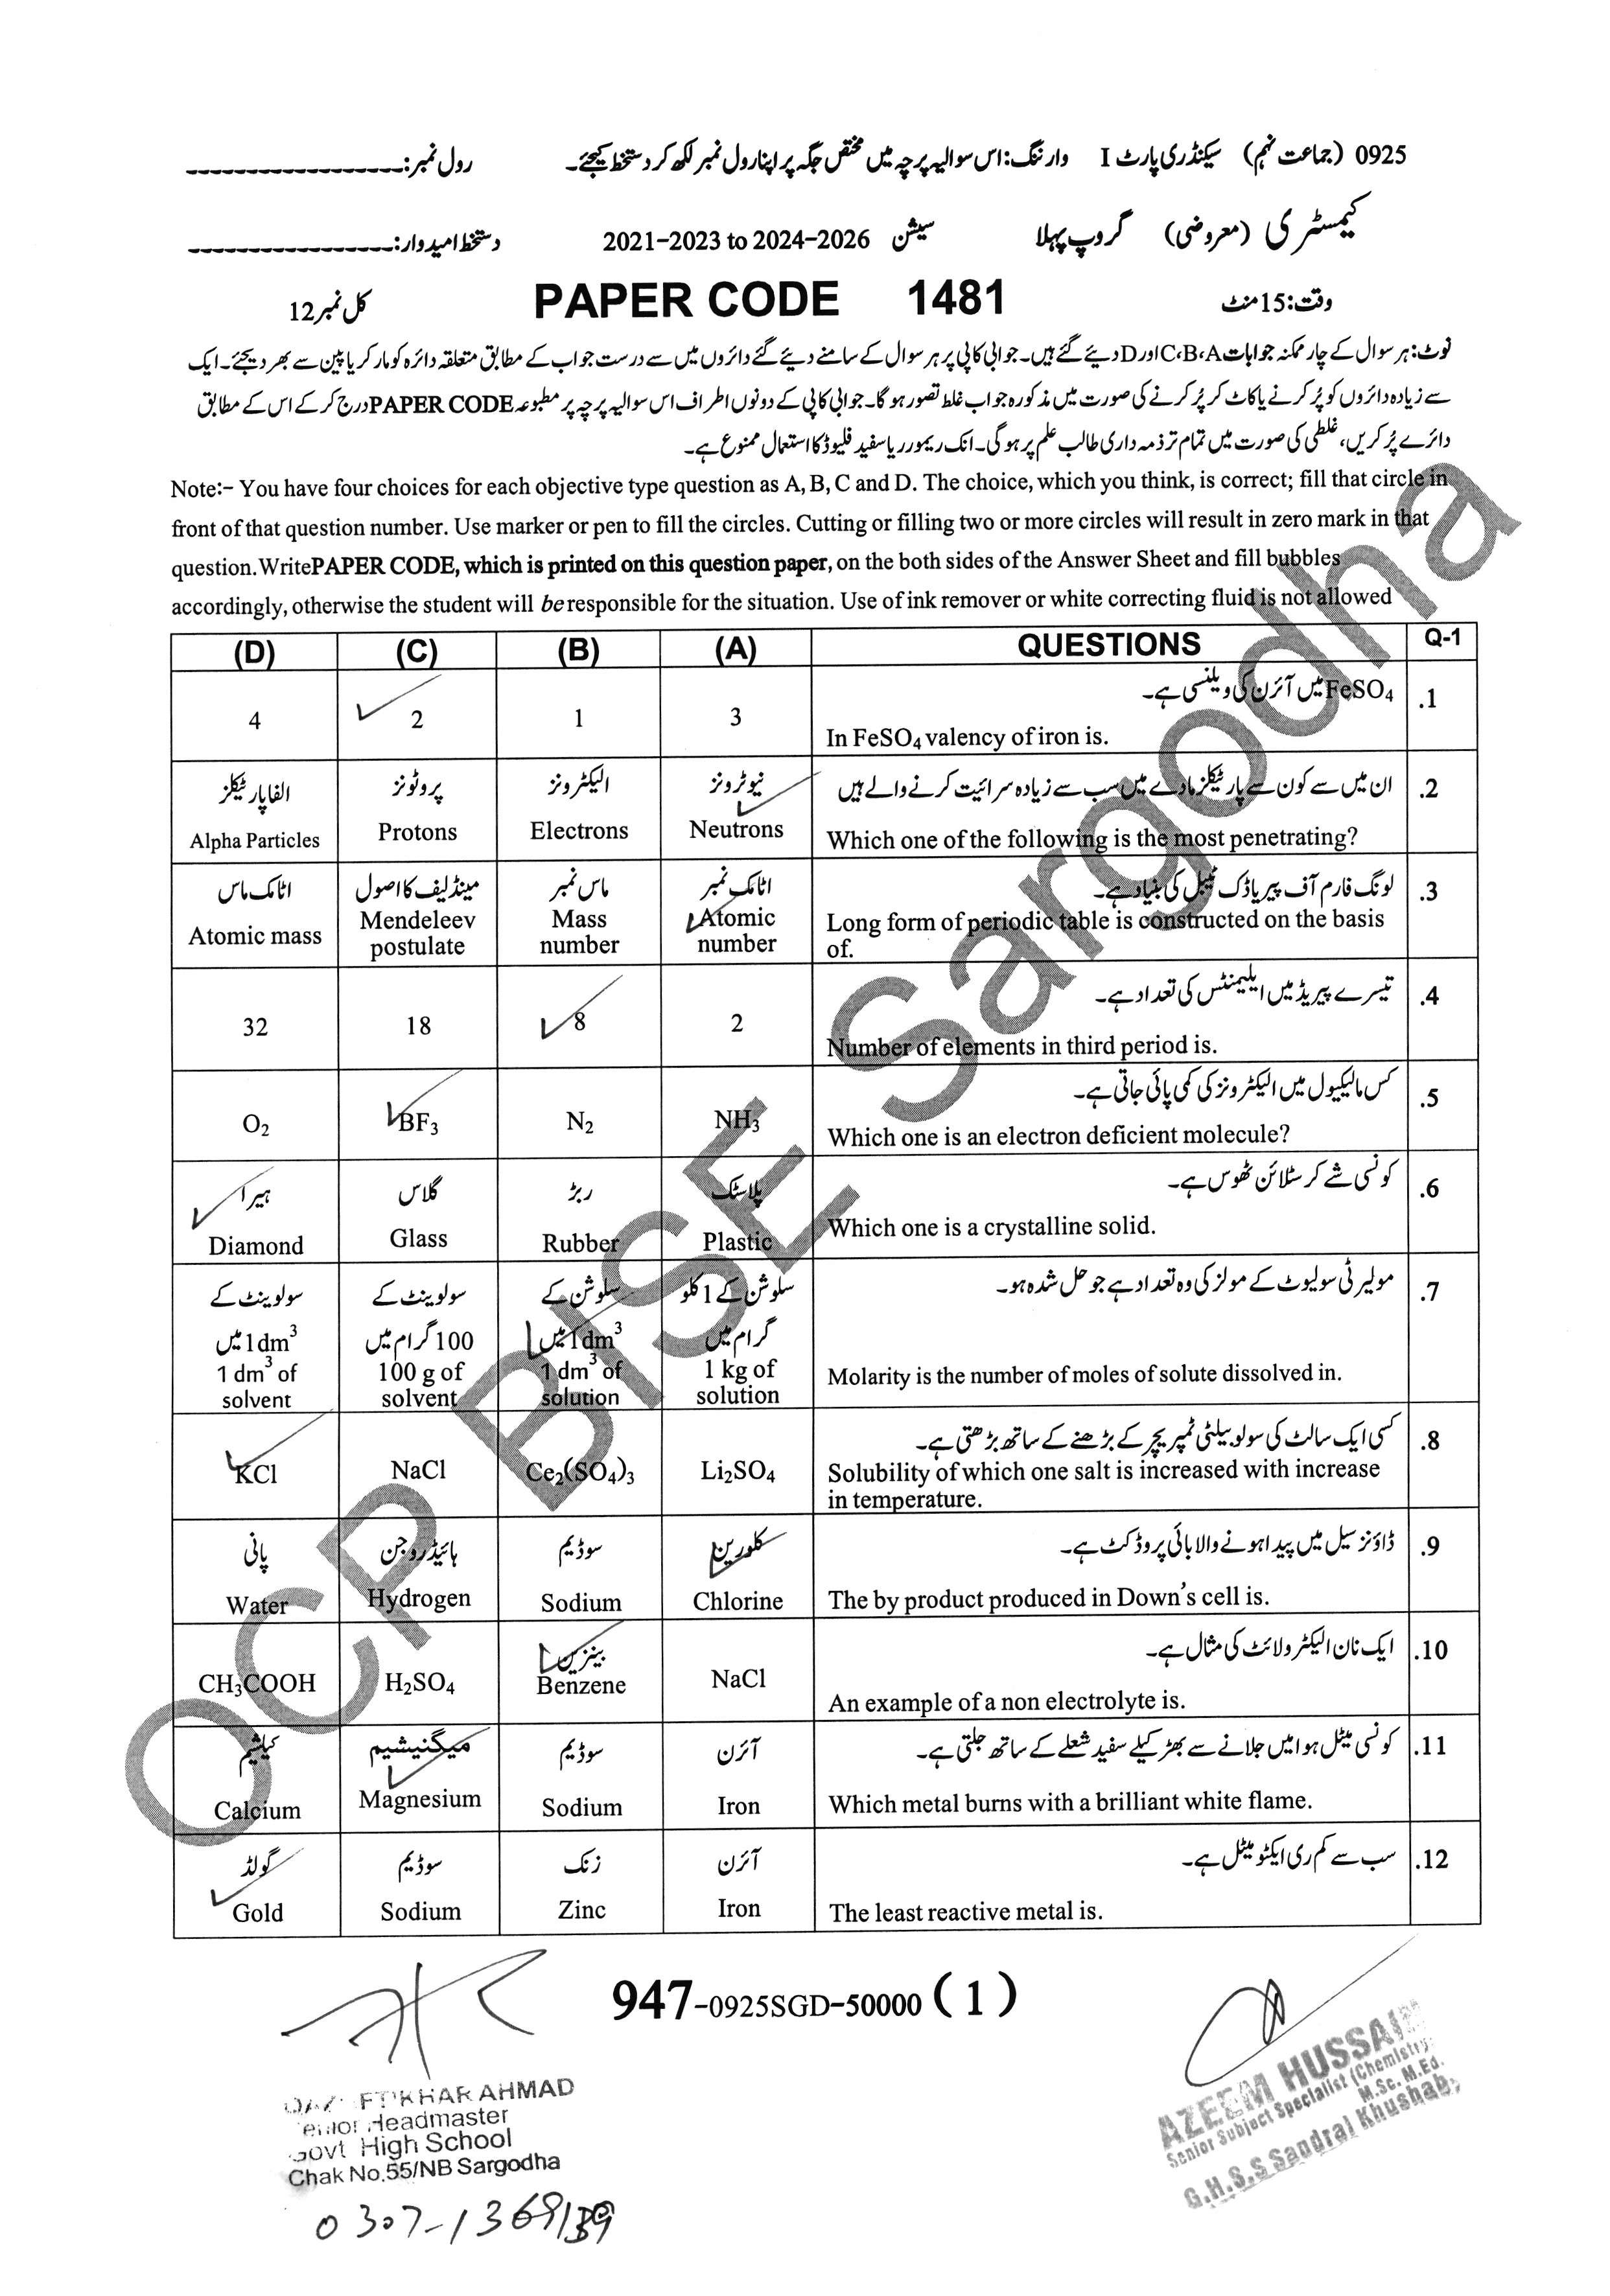 0925 (جماعت نہم) سیکنڈری پارٹ I وارننگ: اس سوالیہ پرچہ میں مختص جگہ پر اپنا رول نمبر لکھ کر دستخط کیجئے۔ رول نمبر:
کیمسٹری (معروضی) گروپ پہلا سیشن 2021–2023 to 2024–2026 دستخط امیدوار:
وقت: 15 منٹ PAPER CODE 1481 کل نمبر 12
نوٹ: ہر سوال کے چار ممکنہ جوابات A،B،C اور D دیئے گئے ہیں۔ جوابی کاپی پر ہر سوال کے سامنے دیئے گئے دائروں میں سے درست جواب کے مطابق متعلقہ دائرہ کو مارکر یا پین سے بھر دیجئے۔ ایک
سے زیادہ دائروں کو پُر کرنے یا کاٹ کر پُر کرنے کی صورت میں مذکورہ جواب غلط تصور ہو گا۔ جوابی کاپی کے دونوں اطراف اس سوالیہ پرچہ پر مطبوعہ PAPER CODE درج کر کے اس کے مطابق
دائرے پُر کریں، غلطی کی صورت میں تمام تر ذمہ داری طالب علم پر ہو گی۔ انک ریمور یا سفید فلیوڈ کا استعمال ممنوع ہے۔
Note:- You have four choices for each objective type question as A, B, C and D. The choice, which you think, is correct; fill that circle in
front of that question number. Use marker or pen to fill the circles. Cutting or filling two or more circles will result in zero mark in that
question.WritePAPER CODE, which is printed on this question paper, on the both sides of the Answer Sheet and fill bubbles
accordingly, otherwise the student will be responsible for the situation. Use of ink remover or white correcting fluid is not allowed
(D) (C) (B) (A) QUESTIONS Q-1
FeSO4 میں آئرن کی ویلنسی ہے۔ .1
4 2 1 3 In FeSO4 valency of iron is.
الفا پارٹیکلز پروٹونز الیکٹرونز نیوٹرونز ان میں سے کون سے پارٹیکلز مادے میں سب سے زیادہ سرائیت کرنے والے ہیں .2
Alpha Particles Protons Electrons Neutrons Which one of the following is the most penetrating?
اٹامک ماس مینڈلیف کا اصول ماس نمبر اٹامک نمبر لونگ فارم آف پیریاڈک ٹیبل کی بنیاد ہے۔ .3
Atomic mass Mendeleev postulate Mass number Atomic number Long form of periodic table is constructed on the basis
of.
تیسرے پیریڈ میں ایلیمنٹس کی تعداد ہے۔ .4
32 18 8 2 Number of elements in third period is.
کس مالیکیول میں الیکٹرونز کی کمی پائی جاتی ہے۔ .5
O2 BF3 N2 NH3 Which one is an electron deficient molecule?
ہیرا گلاس ربڑ پلاسٹک کونسی شے کرسٹلائن ٹھوس ہے۔ .6
Diamond Glass Rubber Plastic Which one is a crystalline solid.
سولوینٹ کے سولوینٹ کے سلوشن کے سلوشن کے 1 کلو مولیرٹی سولیوٹ کے مولز کی وہ تعداد ہے جو حل شدہ ہو۔ .7
1dm3 میں 100 گرام میں 1dm3 میں گرام میں
1 dm3 of 100 g of 1 dm3 of 1 kg of Molarity is the number of moles of solute dissolved in.
solvent solvent solution solution
کسی ایک سالٹ کی سولوبیلٹی ٹمپریچر کے بڑھنے کے ساتھ بڑھتی ہے۔ .8
KCl NaCl Ce2(SO4)3 Li2SO4 Solubility of which one salt is increased with increase
in temperature.
پانی ہائیڈروجن سوڈیم کلورین ڈاؤنز سیل میں پیدا ہونے والا بائی پروڈکٹ ہے۔ .9
Water Hydrogen Sodium Chlorine The by product produced in Down's cell is.
بینزین ایک نان الیکٹرولائٹ کی مثال ہے۔ .10
CH3COOH H2SO4 Benzene NaCl An example of a non electrolyte is.
کیلشیم میگنیشیم سوڈیم آئرن کونسی میٹل ہوا میں جلانے سے بھڑکیلے سفید شعلے کے ساتھ جلتی ہے۔ .11
Calcium Magnesium Sodium Iron Which metal burns with a brilliant white flame.
گولڈ سوڈیم زنک آئرن سب سے کم ری ایکٹو میٹل ہے۔ .12
Gold Sodium Zinc Iron The least reactive metal is.
OCP BISE Sargodha
947-0925SGD-50000 (1)
AHMAD
Headmaster
Govt High School
Chak No.55/NB Sargodha
AZEEM HUSSAIN
Senior Subject Specialist (Chemistry)
M.Sc. M.Ed.
G.H.S.S Sandral Khushab